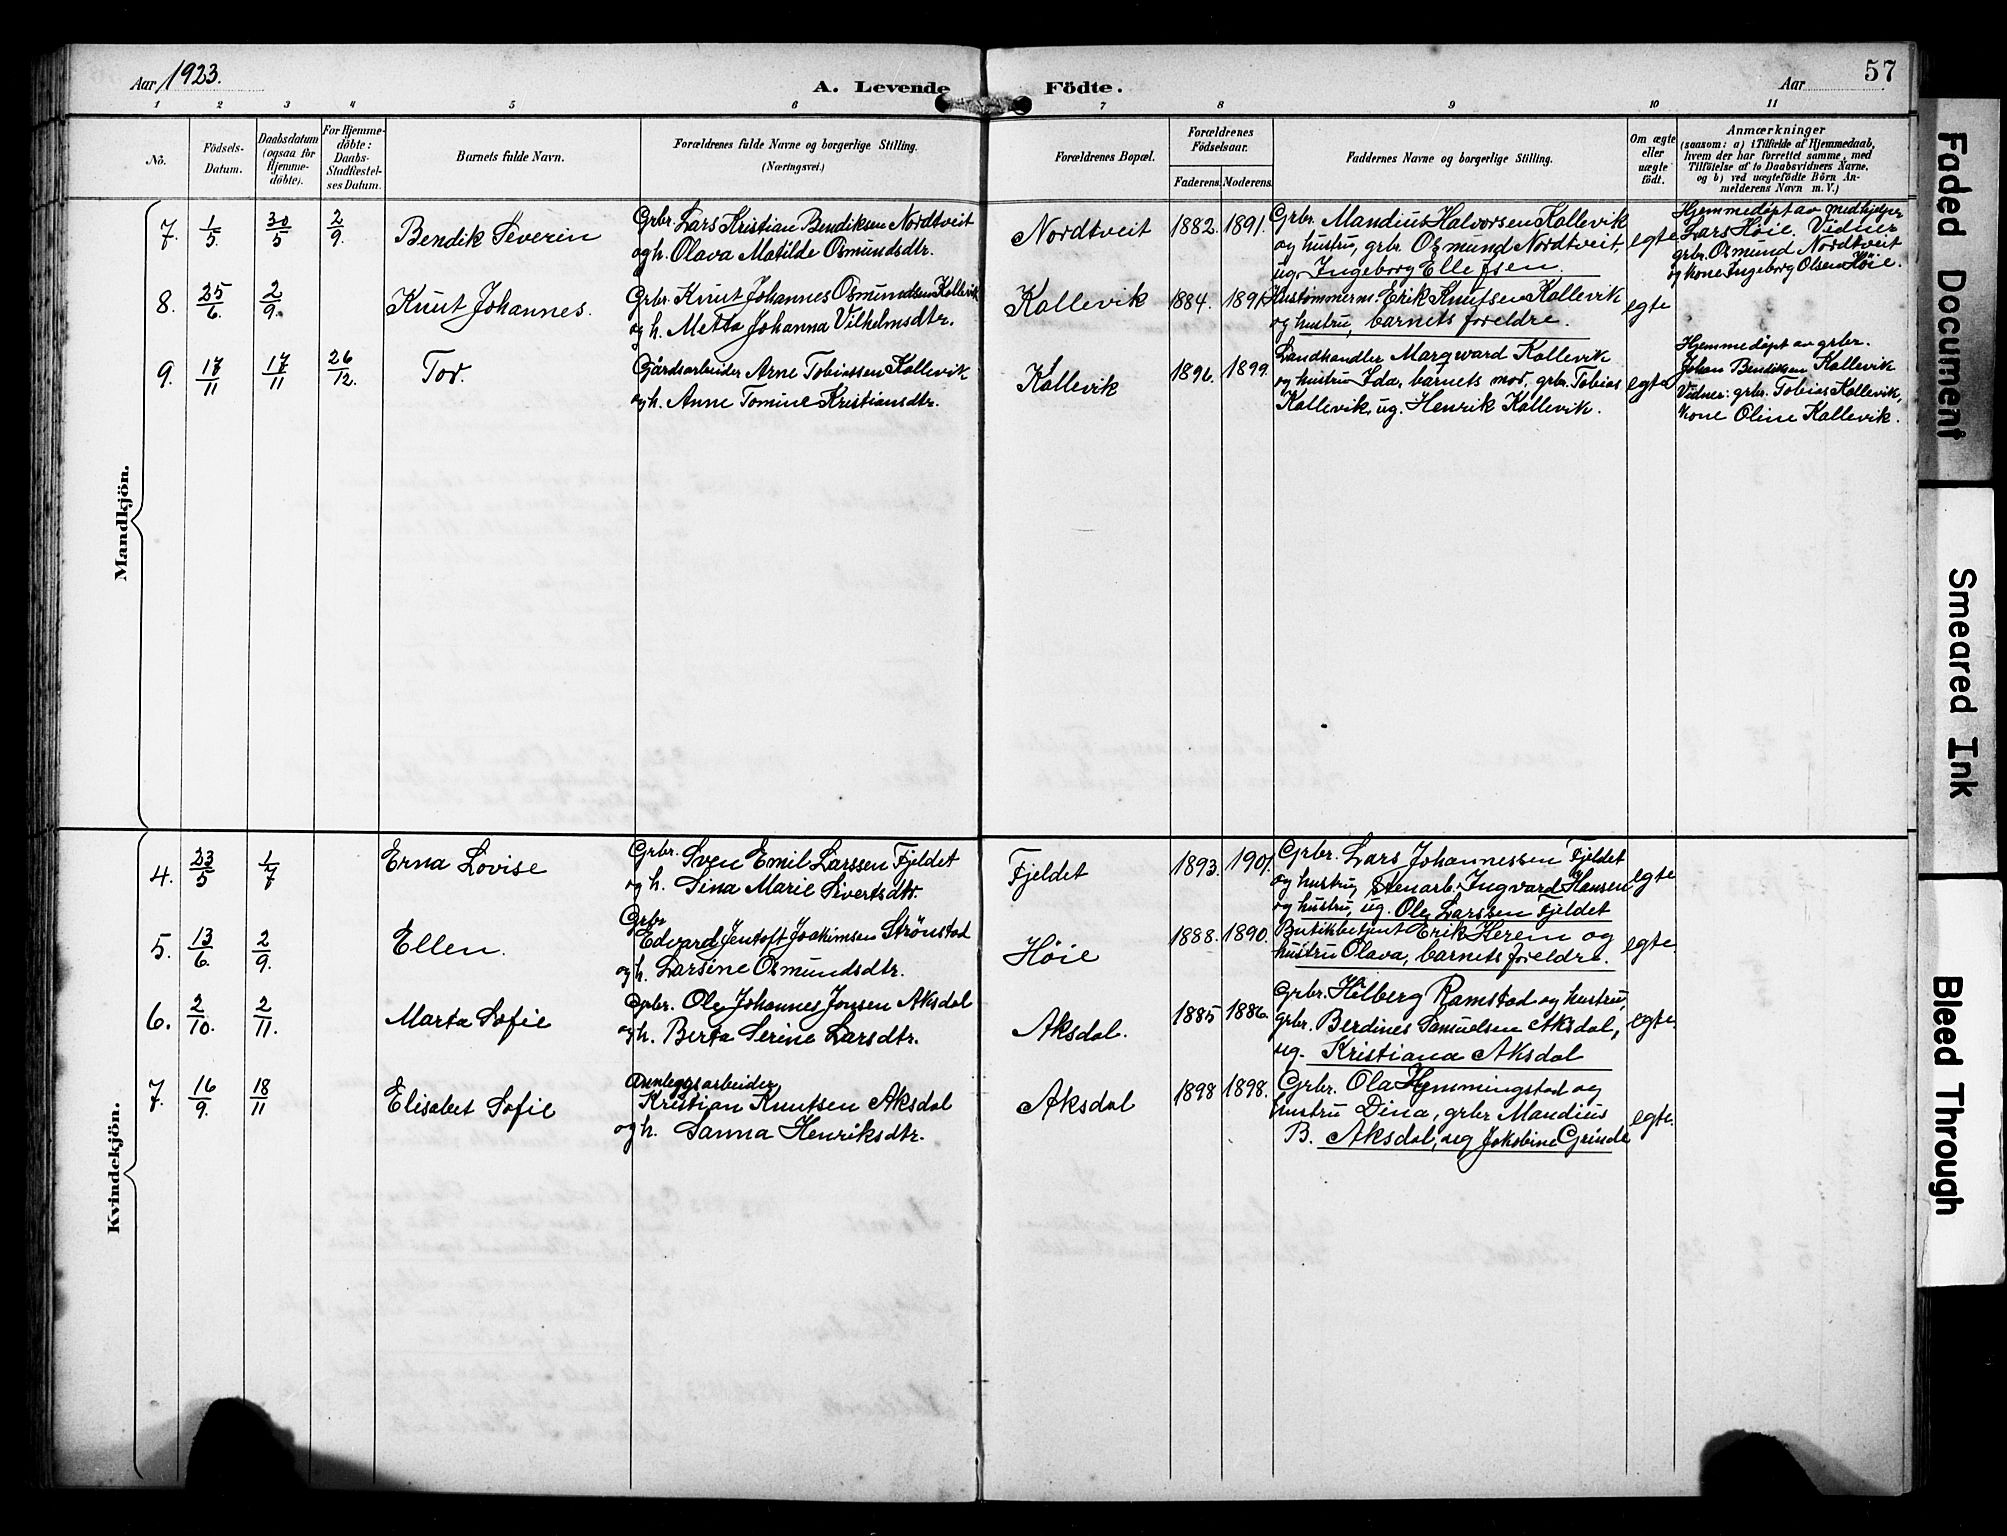 Aar 1923.
A. Levende Födte.
Aar
57
1 2 3 4 5 6 7 8 9 10 11
No.
Födsels-Datum.
Daabsdatum (ogsaa for Hjemme-döbte).
For Hjemme-döbte: Daabs-Stadfæstel-ses Datum.
Barnets fulde Navn.
Forældrenes fulde Navne og borgerlige Stilling. (Næringsvei.)
Forældrenes Bopæl.
Forældrenes Födselsaar.
Faderens. Moderens.
Faddernes Navne og borgerlige Stilling.
Om ægte eller uægte født.
Anmærkninger
(saasom: a) i Tilfælde af Hjemmedaab,
hvem der har forrettet samme, med
Tilföielse af to Daabsvidners Navne,
og b) ved uægtefödte Börn An-
melderens Navn m. V.)
Mandkjön.
7. 1/5 30/5 2/9. Bendik Severin
Grbr. Lars Kristian Bendiksen Nordtveit
og h. Olava Matilde Osmundsdtr.
Nordtveit 1882. 1891.
Grbr. Mandius Halvorsen Kallevik
og hustru, grbr. Osmund Nordtveit,
ug. Ingeborg Ellefsen.
egte
Hjemmedøpt av medhjelper
Lars Høie. Vidner
grbr. Osmund Nordtveit
og kone Ingeborg Olsen Høie.
8. 25/6 2/9. Knut Johannes.
Grbr. Knut Johannes Osmundsen Kallevik
og h. Metta Johanna Vilhelmsdtr.
Kallevik 1884. 1891.
Hustømmerm. Erik Knutsen Kallevik
og hustru, barnets foreldre.
egte
9. 17/11 17/11 26/12. Tor.
Gårdsarbeider Arne Tobiassen Kallevik
og h. Anne Tomine Kristiansdtr.
Kallevik 1896. 1899.
Landhandler Marqward Kallevik
og hustru Ida, barnets mor, grbr. Tobias
Kallevik, ug. Henrik Kallevik.
egte
Hjemmedøpt av grbr.
Johan Bendiksen Kallevik
Vidner: grbr. Tobias Kallevik,
kone Oline Kallevik.
Kvindekjön.
4. 23/5 1/7 Erna Lovise
Grbr. Sven Emil Larssen Fjeldet
og h. Sina Marie Sivertsdtr.
Fjeldet 1893. 1901.
Grbr. Lars Johannessen Fjeldet
og hustru, stenarb. Ingvard Hansen
og hustru, ug. Ole Larssen Fjeldet
egte
5. 13/6. 2/9. Ellen.
Grbr
Edvard Jentoft Joakimsen Strönstad
og h. Larsine Osmundsdtr.
Høie 1888. 1890.
Butikbetjent Erik Herem og
hustru Olava, barnets foreldre.
egte
6. 2/10. 2/11. Marta Sofie
Grbr. Ole Johannes Jonsen Aksdal
og h. Berta Serine Larsdtr.
Aksdal. 1885 1886.
Grbr. Hilberg Ramstad og hustru,
grbr. Berdines Samuelsen Aksdal,
ug. Kristiana Aksdal
egte
7. 16/9. 18/11 Elisabet Sofie
Anleggsarbeider
Kristian Knutsen Aksdal
og h. Sanna Henriksdtr.
Aksdal 1898 1898.
Grbr. Ola Hemmingstad og
hustru Dina, grbr Mandius
B. Aksdal, ug Jakobine Grinde
egte.
Faded Document
Smeared Ink
Bleed Through